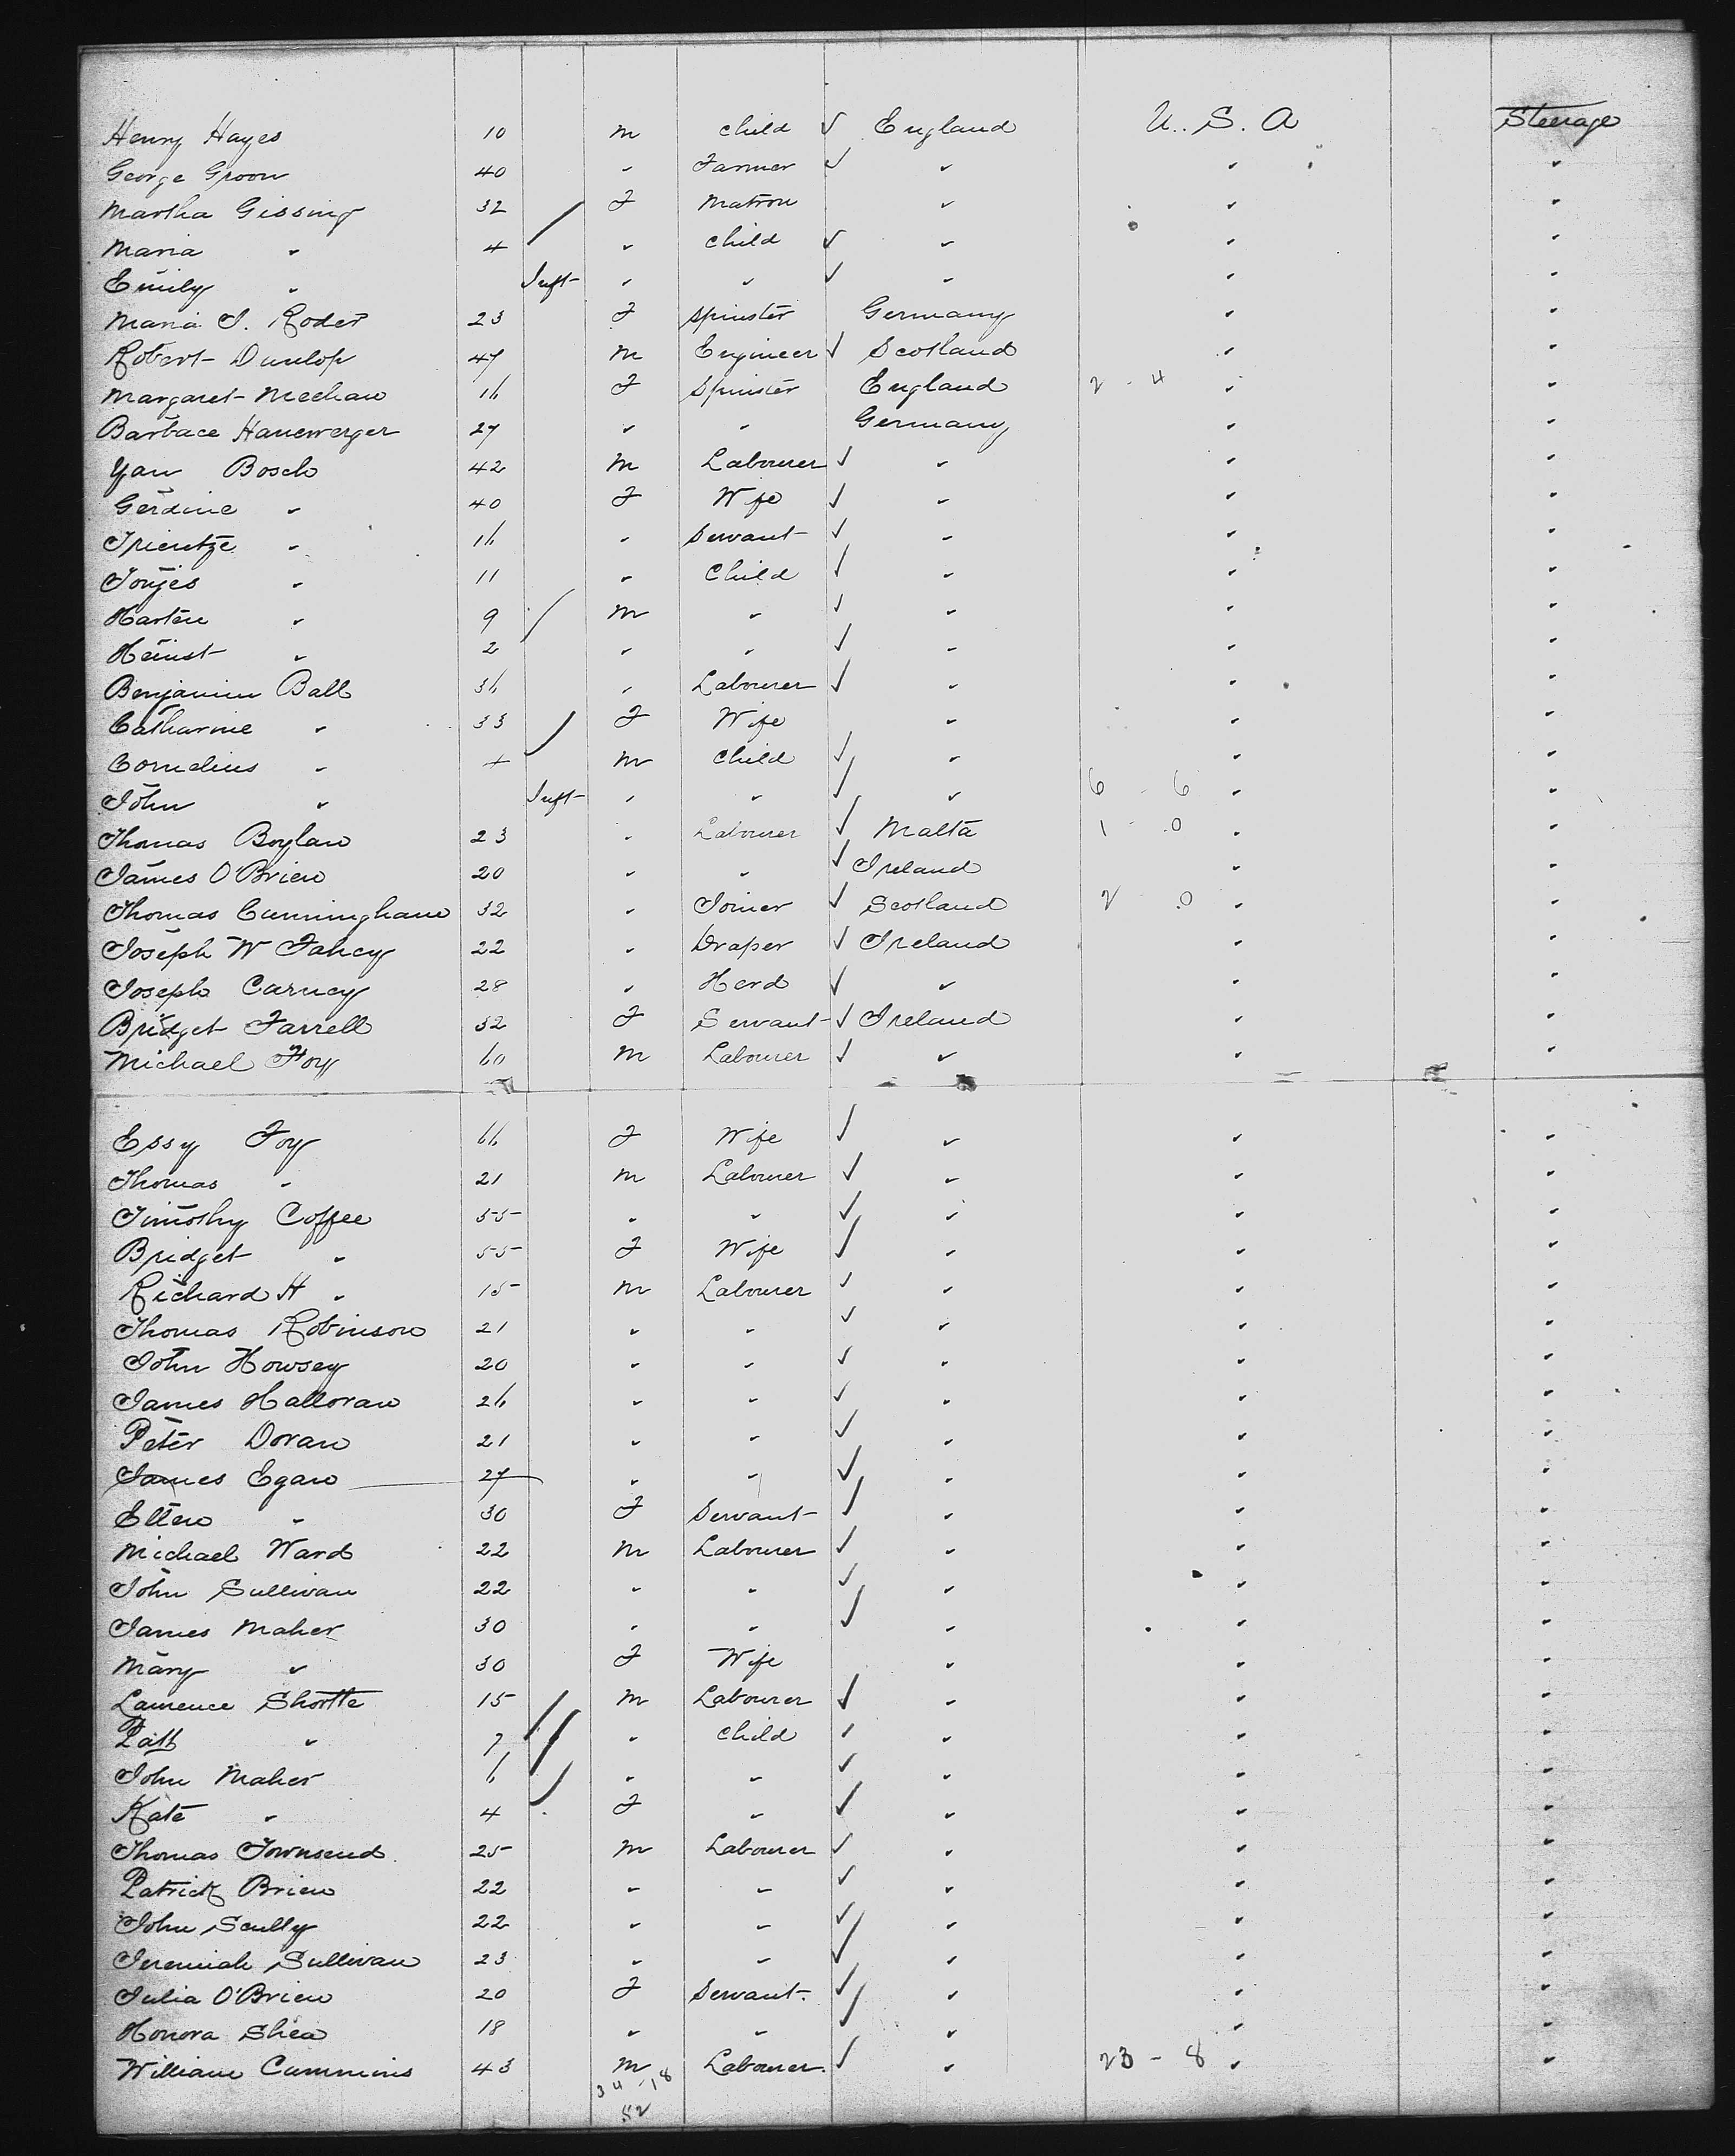 Henry Hayes 10 m child ✓ England U.S.A Steerage
George Groom 40 " Farmer ✓ " " "
Martha Gissing 32 F Matron " " "
Maria " 4 " child ✓ " " "
Emily " Inft " " ✓ " " "
Maria J. Roder 23 F Spinster Germany " "
Robert Dunlop 47 m Engineer ✓ Scotland " "
Margaret Meehan 16 F Spinster England 2 - 4 " "
Barbace Hanewerger 27 " " Germany " "
Yan Bosch 42 m Labourer ✓ " " "
Gerdine " 40 F Wife ✓ " " "
Trientze " 16 " Servant ✓ " " "
Tonjes " 11 " Child ✓ " " "
Harten " 9 m " ✓ " " "
Heinst " 2 " " ✓ " " "
Benjamin Ball 36 " Labourer ✓ " " "
Catharine " 33 F Wife " " "
Cornelius " 4 m Child ✓ " " "
John " Inft " " ✓ " 6 - 6 " "
Thomas Boylan 23 " Labourer ✓ Malta 1 - 0 " "
James O'Brien 20 " " ✓ Ireland " "
Thomas Cunningham 32 " Joiner ✓ Scotland 2 0 " "
Joseph W Fahey 22 " Draper ✓ Ireland " "
Joseph Carney 28 " Herd ✓ " " "
Bridget Farrell 32 F Servant ✓ Ireland " "
Michael Foy 60 m Labourer ✓ " " "
Essy Foy 66 F Wife ✓ " " "
Thomas " 21 m Labourer ✓ " " "
Timothy Coffee 55 " " ✓ " " "
Bridget " 55 F Wife ✓ " " "
Richard H " 15 m Labourer ✓ " " "
Thomas Robinson 21 " " ✓ " " "
John Howsey 20 " " ✓ " " "
James Halloran 26 " " ✓ " " "
Peter Doran 21 " " ✓ " " "
James Egan 27 " " ✓ " " "
Ellen " 30 F Servant ✓ " " "
Michael Ward 22 m Labourer ✓ " " "
John Sullivan 22 " " ✓ " " "
James Maher 30 " " ✓ " " "
Mary " 30 F Wife " " "
Laurence Shortte 15 m Labourer ✓ " " "
Patk " 7 " Child ✓ " " "
John Maher 6 " " ✓ " " "
Kate " 4 F " ✓ " " "
Thomas Townsend 25 m Labourer ✓ " " "
Patrick Brien 22 " " ✓ " " "
John Scully 22 " " ✓ " " "
Jeremiah Sullivan 23 " " ✓ " " "
Julia O'Brien 20 F Servant ✓ " " "
Honora Shea 18 " " ✓ " " "
William Cummins 43 m Labourer ✓ " 23 - 8 " "
34 - 18
52